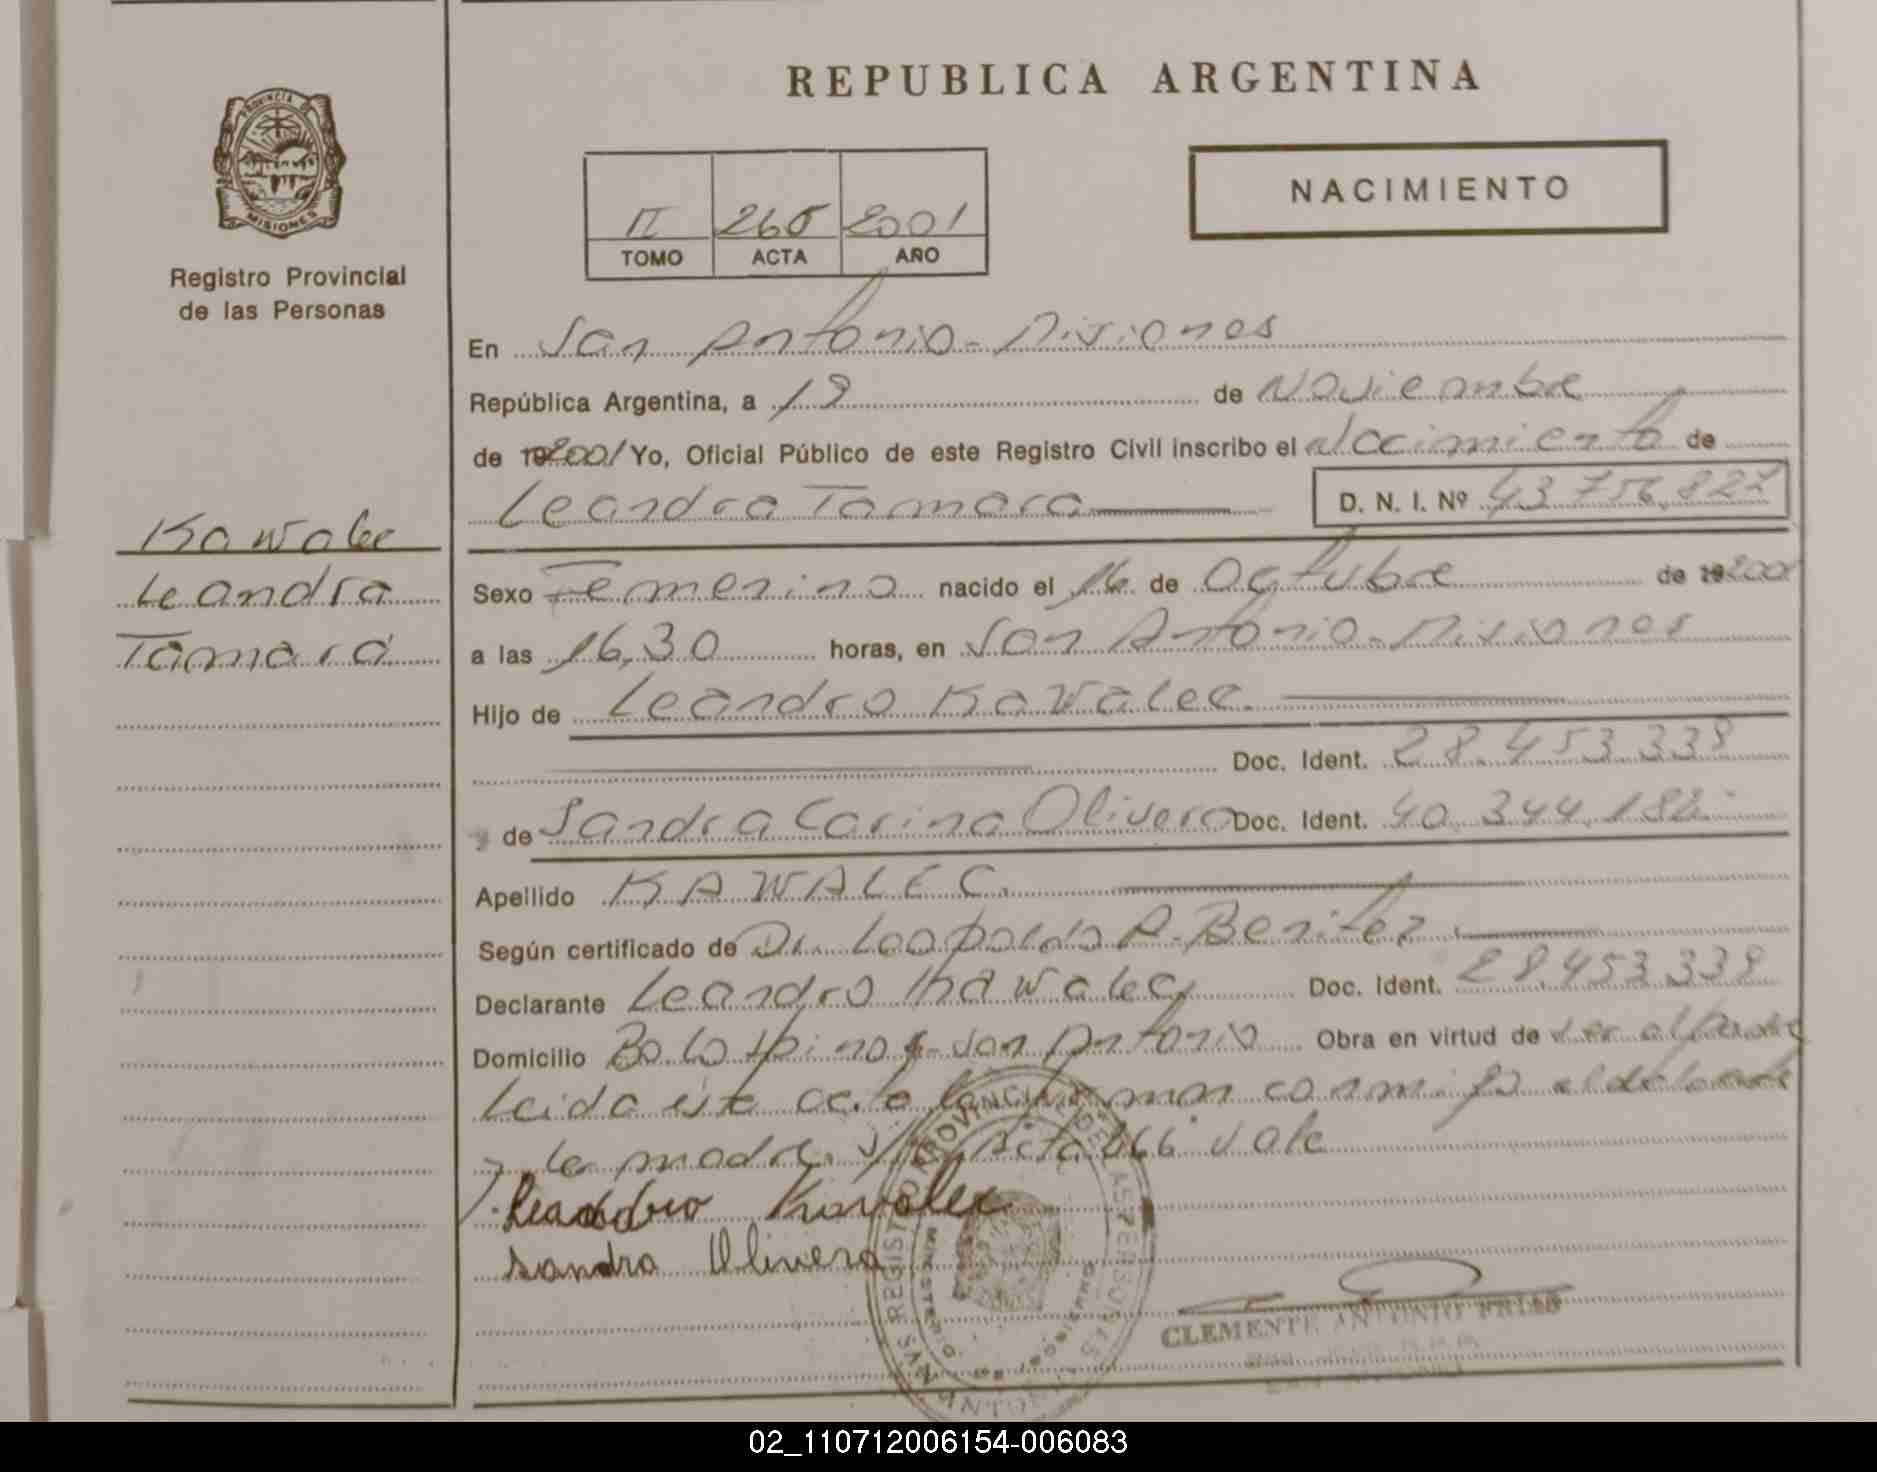 REPUBLICA ARGENTINA
PROVINCIA DE
MISIONES
Registro Provincial
de las Personas
NACIMIENTO
II 2001
TOMO ACTA AÑO
En San Antonio - Misiones
República Argentina, a 19 de Noviembre
de 2001 Yo, Oficial Público de este Registro Civil inscribo el Nacimiento de
Leandra Tamara D. N. I. Nº 43.756.827
Kawalec
Leandra
Tamara
Sexo Femenino nacido el 16 de Octubre de 2001
a las 16,30 horas, en San Antonio - Misiones
Hijo de Leandro Kawalec.
Doc. Ident. 28.453.339
y de Sandra Carina Olivera Doc. Ident. 40.344.184
Apellido KAWALEC.
Según certificado de Dr. Leopoldo A. Benitez
Declarante Leandro Kawalec Doc. Ident. 28.453.339
Domicilio San Antonio Obra en virtud de ser el Padre
Leida este acta la firman conmigo el declarante
y la madre. Acta vale
Leandro Kawalec
Sandra Olivera
CLEMENTE ANTONIO FRIAS
02_110712006154-006083